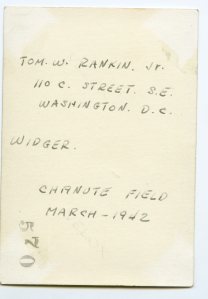 TOM. W. RANKIN, Jr.
110 C. STREET. S.E.
WASHINGTON. D.C.
WIDGER.
CHANUTE FIELD
MARCH - 1942
025